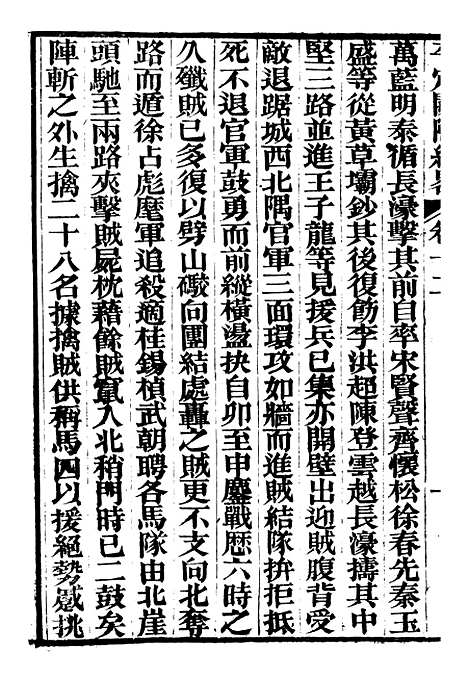 平定關隴紀略　卷十二　一
萬藍明泰循長濠擊其前自率宋賢聲齊懷松徐春先秦玉
盛等從黃草壩鈔其後復飭李洪超陳登雲越長濠擣其中
堅三路並進王子龍等見援兵已集亦開壁出迎賊腹背受
敵退踞城西北隅官軍三面環攻如牆而進賊結隊拚拒抵
死不退官軍鼓勇而前縱橫盪抉自卯至申鏖戰歷六時之
久殲賊已多復以劈山礮向團結處轟之賊更不支向北奪
路而遁徐占彪麾軍追殺適桂錫楨武朝聘各馬隊由北崖
頭馳至兩路夾擊賊屍枕藉餘賊竄入北稍門時已二鼓矣
陣斬之外生擒二十八名據擒賊供稱馬四以援絕勢蹙挑